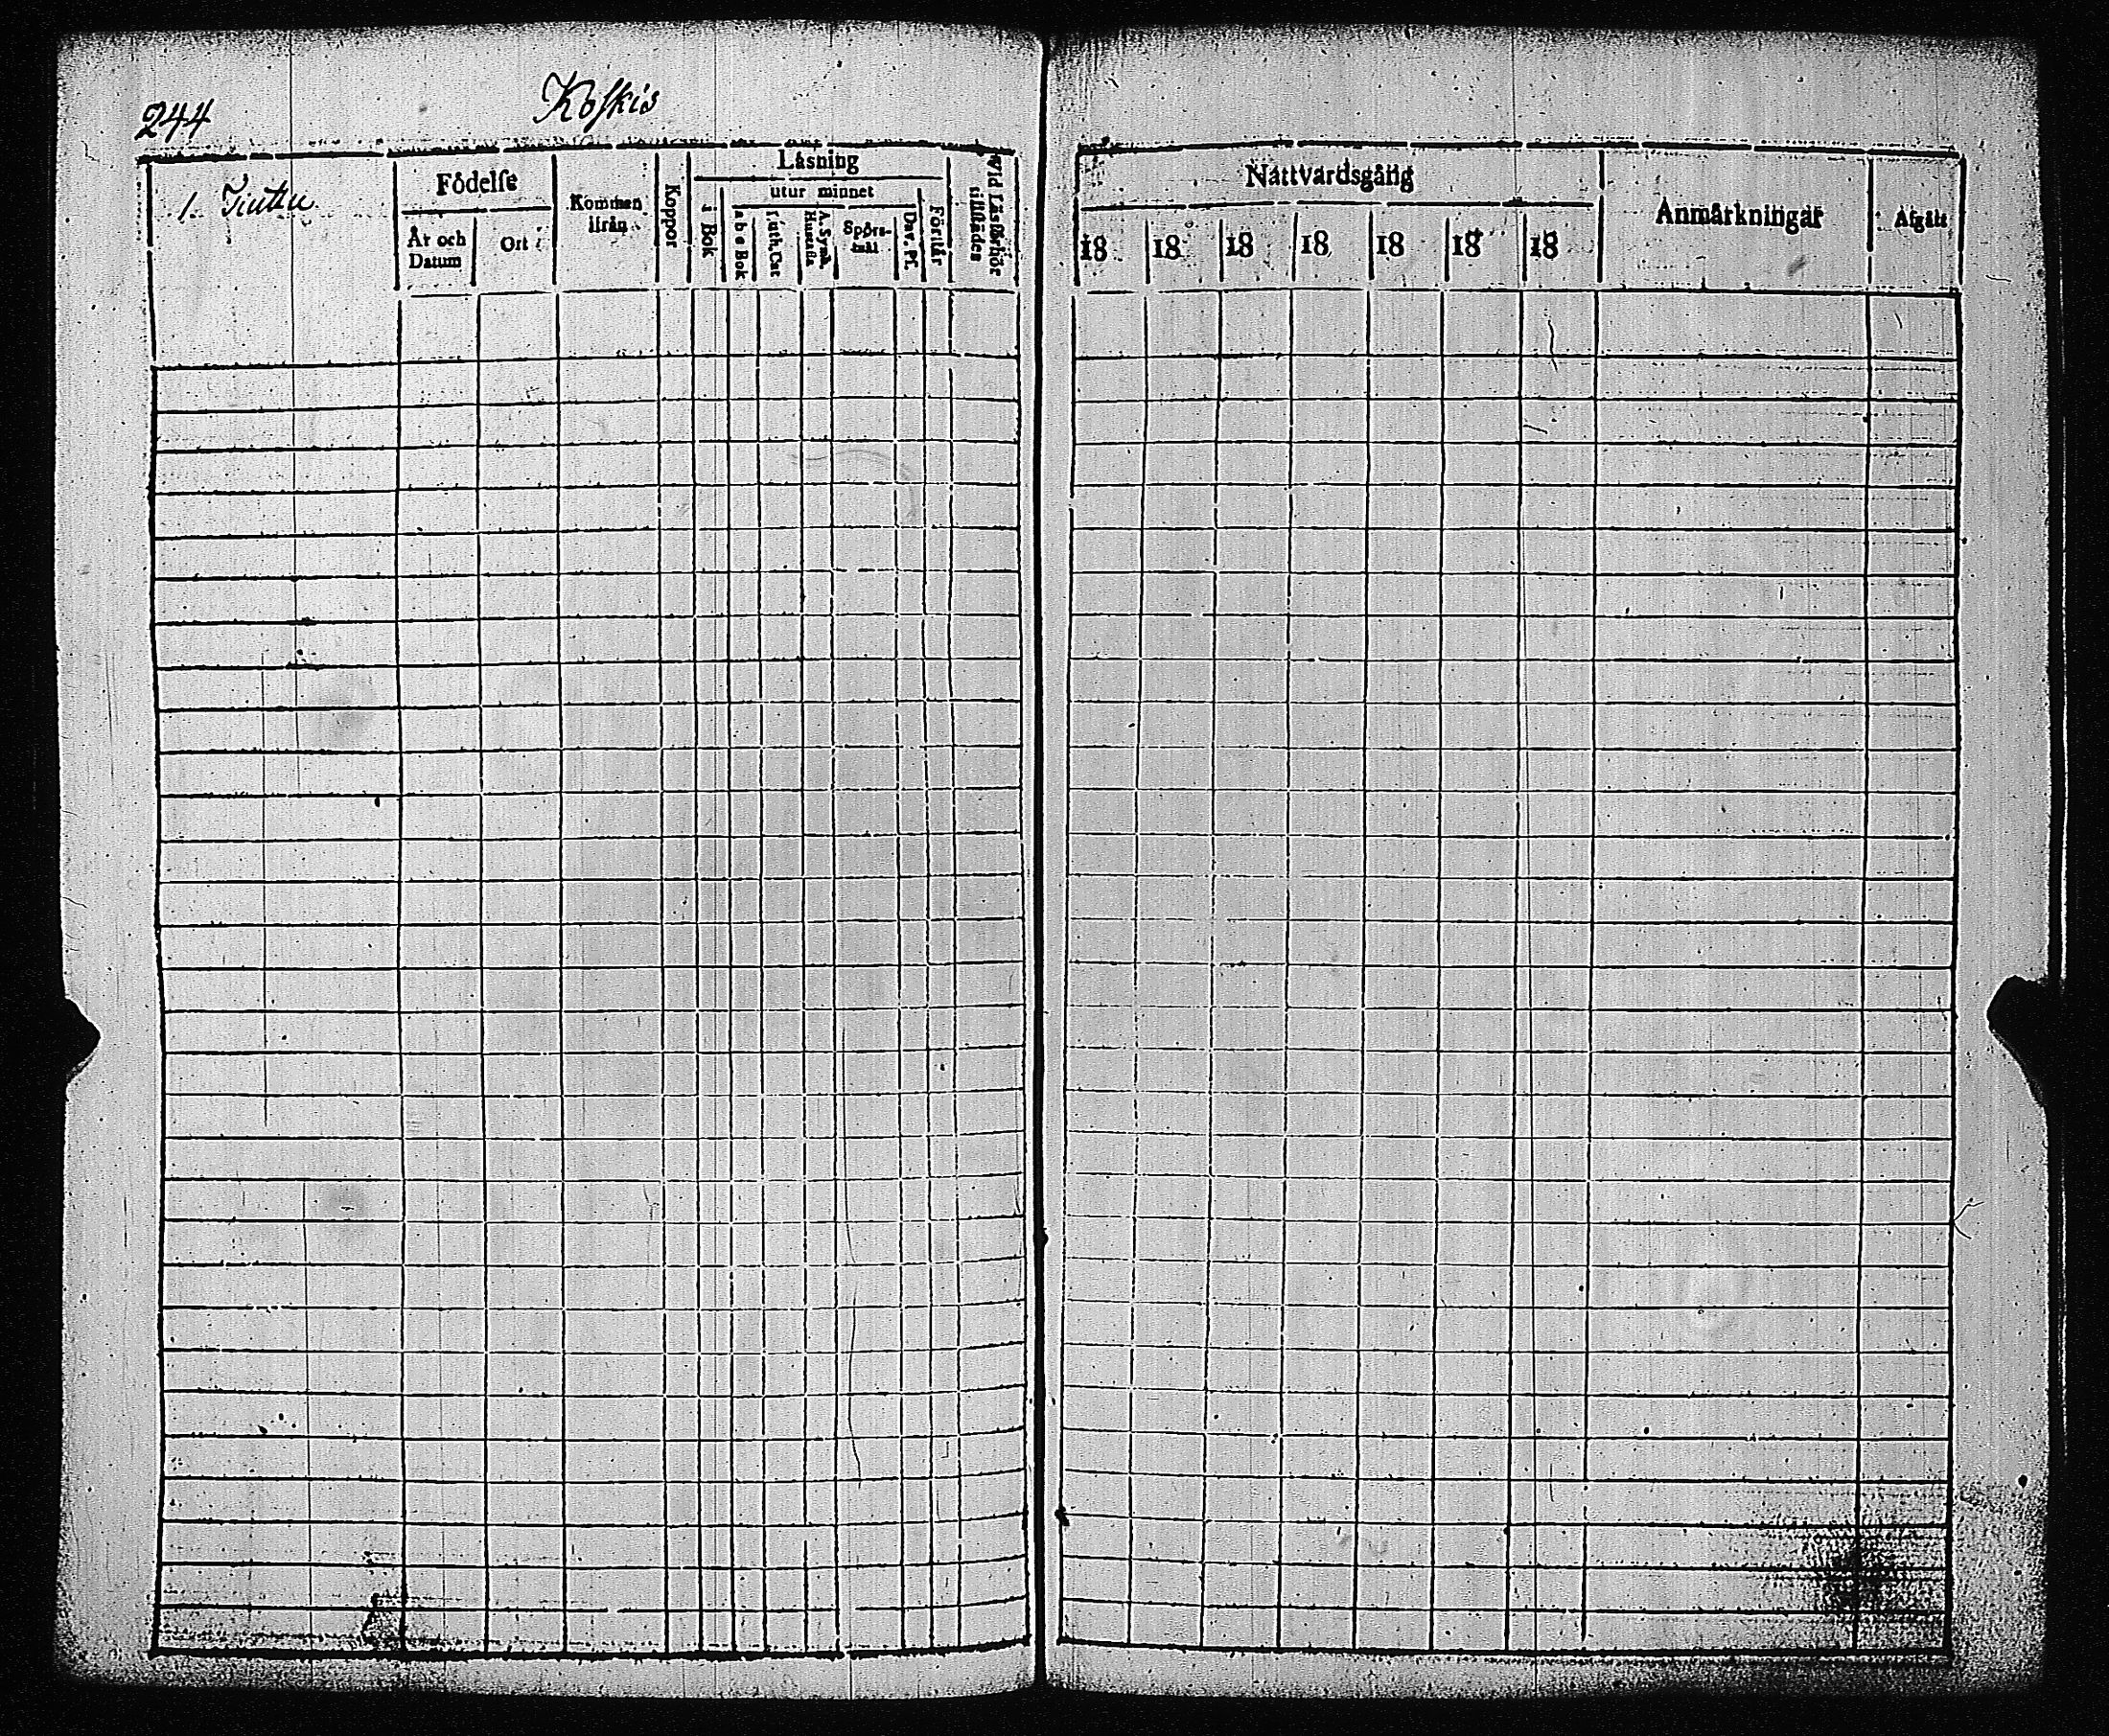 244
Koskis
1. Tinttu
Födelse
År och Datum
Ort
Kommen ifrån
Koppor
Läsning
i Bok
utur minnet
a b c Bok
Luth. Cat
A. Symb.
Hustafla
Spörs-mål
Dav. Ps.
Förstår
Vid Läsförhör tillstädes
Nattvardsgång
18 18 18 18 18 18 18
Anmärkningar
Afgått